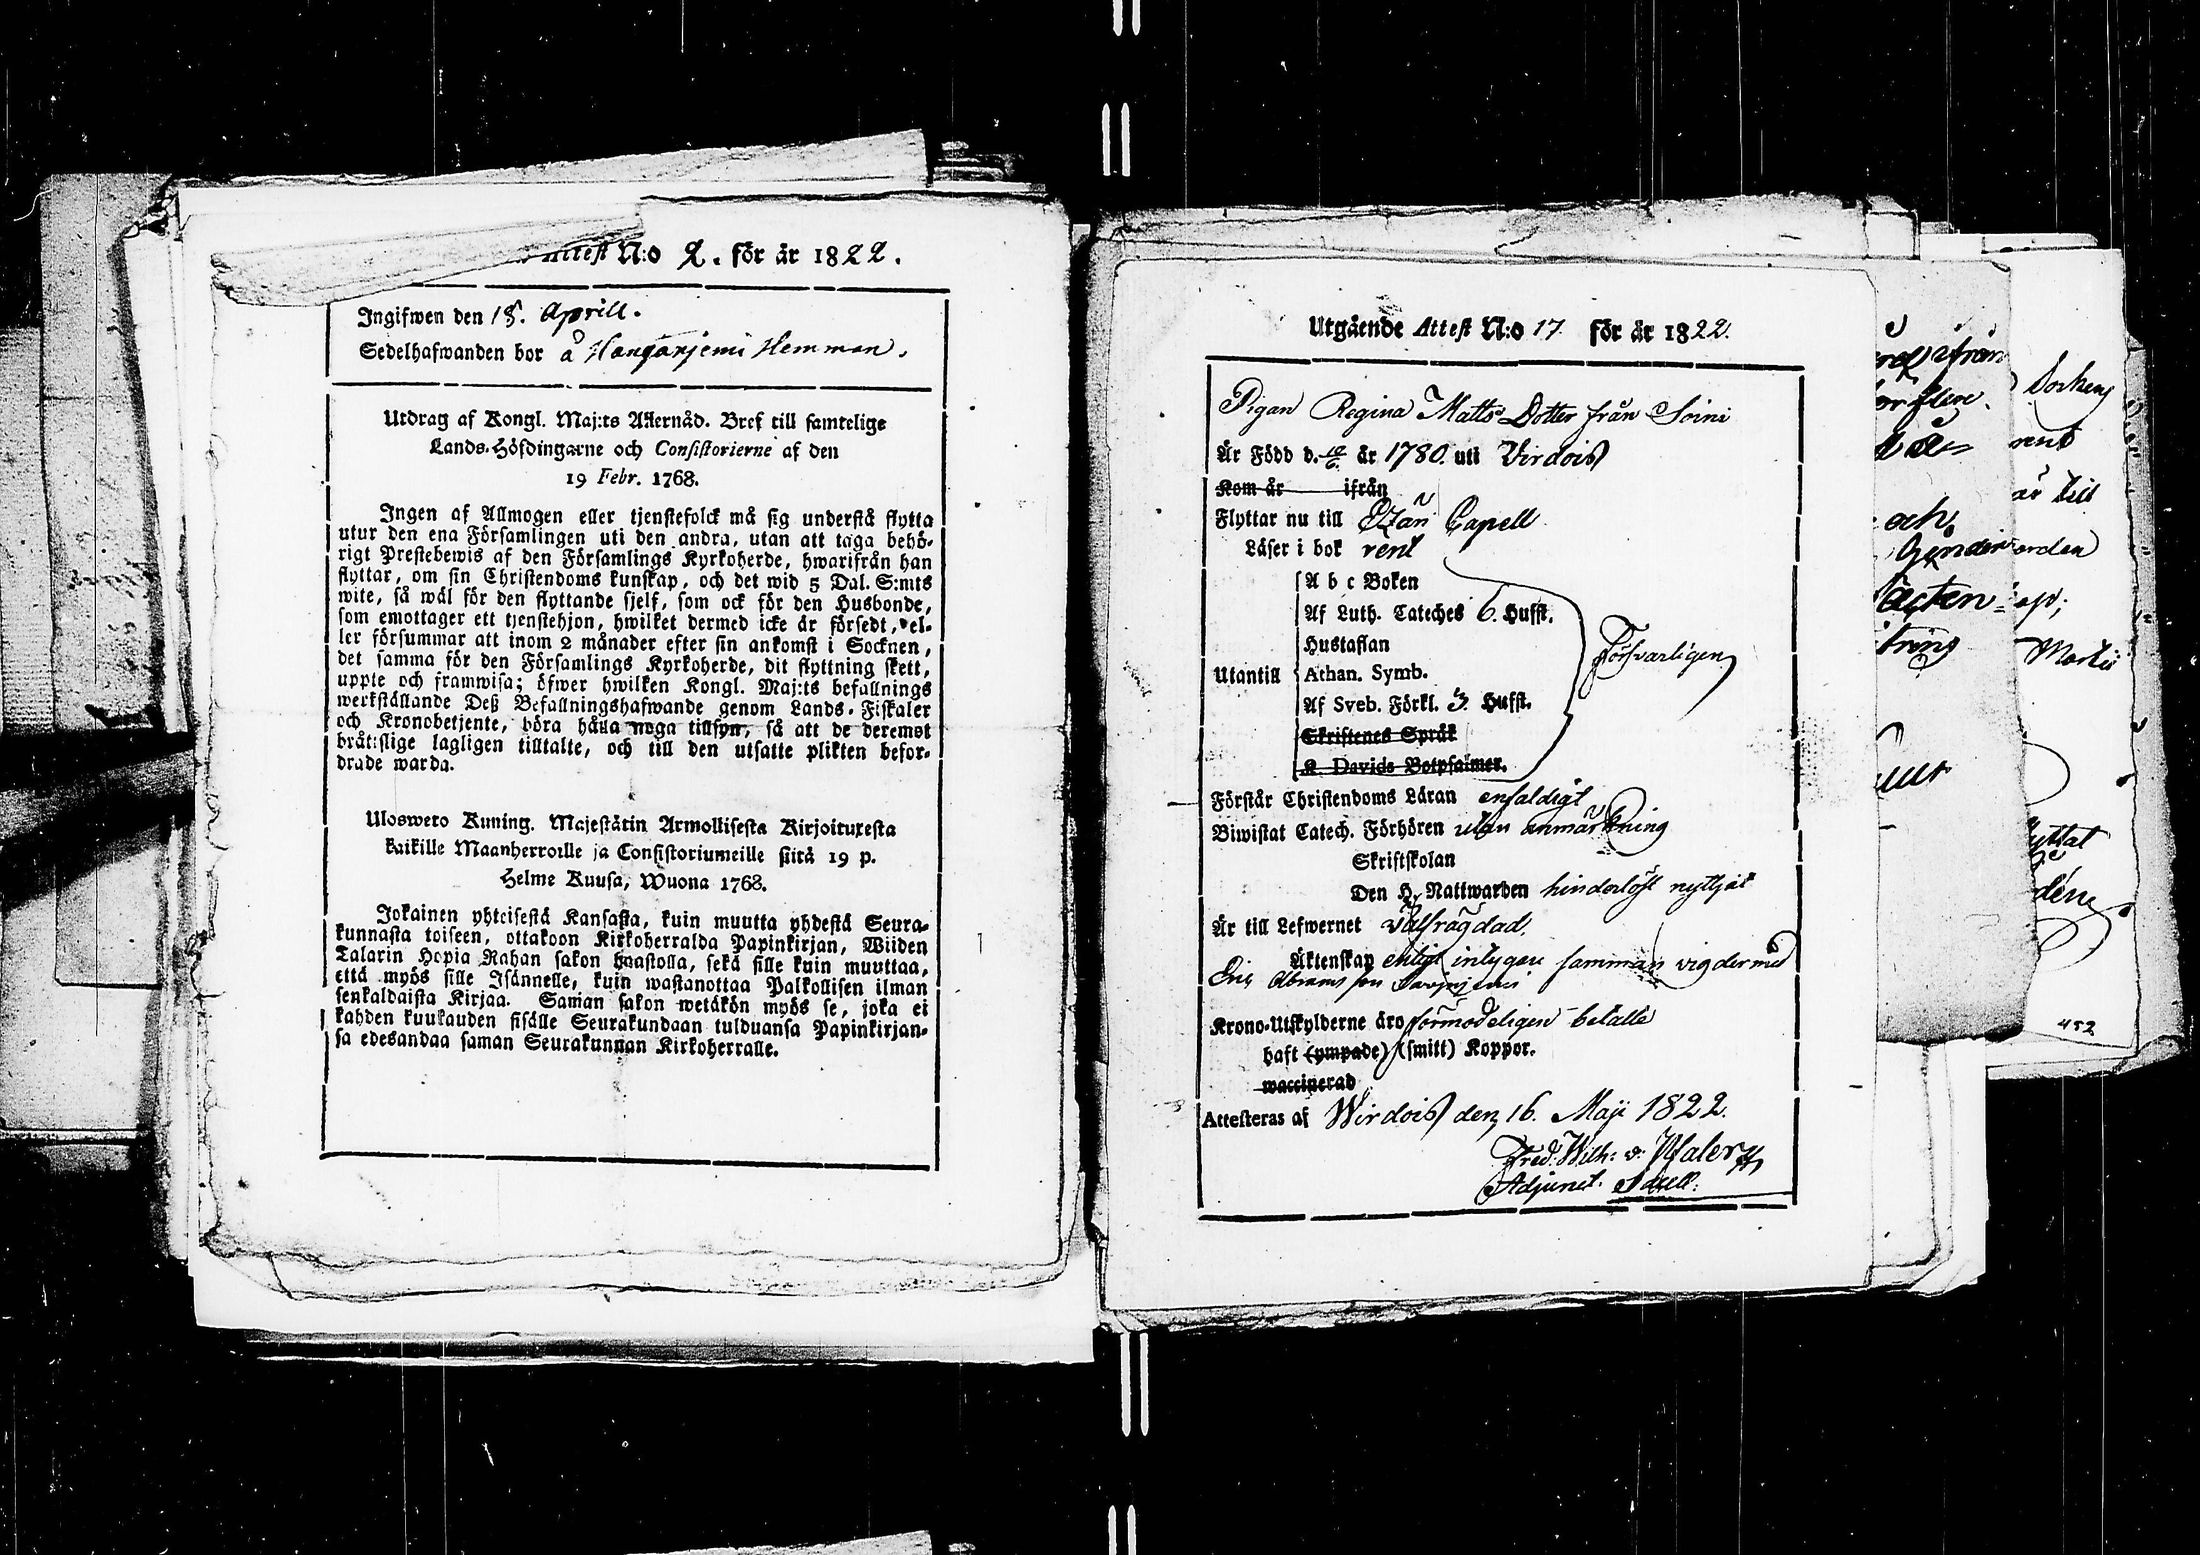 Attest N:o 2. för år 1822.
Ingifwen den 18. Aprill.
Sedelhafwanden bor å Hemman.
Utdrag af Kongl. Maj:ts Allernåd. Bref till samtelige
Lands-Höfdingarne och Consistorierne af den
19 Febr. 1768.
Ingen af Allmogen eller tjenstefolck må sig understå flytta
utur den ena Församlingen uti den andra, utan att taga behö-
rigt Prestebewis af den Församlings Kyrkoherde, hwarifrån han
flyttar, om sin Christendoms kunskap, och det wid 5 Dal. S:mts
wite, så wäl för den flyttande sjelf, som ock för den Husbonde,
som emottager ett tjenstehjon, hwilket dermed icke är försedt, el-
ler försummar att inom 2 månader efter sin ankomst i Socknen,
det samma för den Församlings Kyrkoherde, dit flyttning skett,
uppte och framwisa; öfwer hwilken Kongl. Maj:ts befallnings
werkställande Deß Befallningshafwande genom Lands-Fiskaler
och Kronobetjente, böra hålla noga tillsyn, så att de deremot
bråtslige lagligen tilltalte, och till den utsatte plikten befor-
drade warda.
Ulosweto Kuning. Majestätin Armollisesta Kirjoituxesta
kaikille Maanherroille ja Consistoriumeille siitä 19 p.
Helme Kuusa, Wuona 1768.
Jokainen yhteisestä Kansasta, kuin muutta yhdestä Seura-
kunnasta toiseen, ottakoon Kirkoherralda Papinkirjan, Wiiden
Talarin Hopia Rahan sakon haastolla, sekä sille kuin muuttaa,
että myös sille Isännelle, kuin wastanottaa Palkollisen ilman
senkaldaista Kirjaa. Saman sakon wetäkön myös se, joka ei
kahden kuukauden sisälle Seurakundaan tulduansa Papinkirjan-
sa edesandaa saman Seurakunnan Kirkoherralle.
Utgående Attest N:o 17 för år 1822.
Pigan Regina Matts Dotter från Soini
Är Född d. 12/6. år 1780. uti Virdois
Kom år ifrån
Flyttar nu till Etzäri Capell
Läser i bok rent
A b c Boken
Af Luth. Cateches 6. Hufst.
Hustaflan
Utantill Athan. Symb.
Försvarligen
Af Sveb. Förkl. 3. Hufst.
Skriftenes Språk
K. Davids Botpsalmer.
Förstår Christendoms Läran enfaldigt
Biwistat Catech. Förhören utan anmärkning
Skriftskolan
Den H. Nattwarden hinderlöst nyttjat
Är till Lefwernet välfrägdad.
Äktenskap enligt intygen samman vigder med
Eric Abramsson
Krono-Utskylderne äro förmodeligen betalte
haft (ympade) (smitt) Koppor.
waccinerad
Attesteras af Wirdois den 16. Maji 1822.
Fred: Wilh: v: Pfaler
Adjunct.
ifrån
och
Socken
rent
är till
452